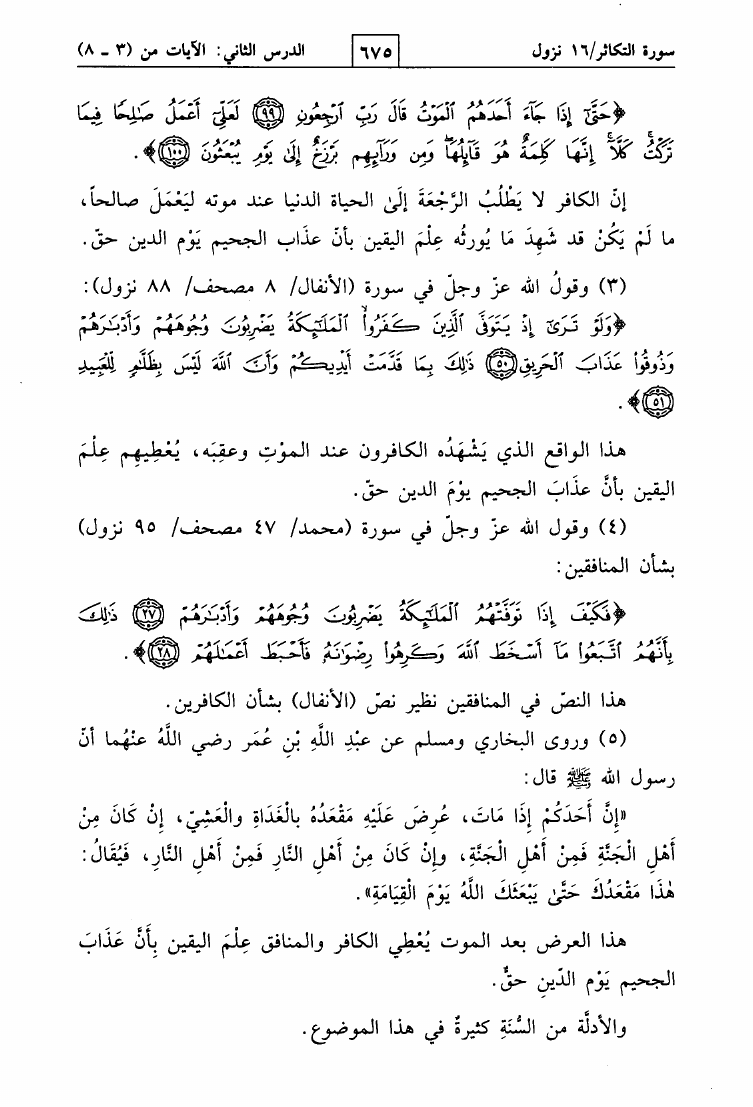 سورة التكاثر/١٦ نزول
٦٧٥
الدرس الثاني: الآيات من (٣ - ٨)
﴿حَتَّىٰٓ إِذَا جَآءَ أَحَدَهُمُ ٱلْمَوْتُ قَالَ رَبِّ ٱرْجِعُونِ ۝٩٩ لَعَلِّىٓ أَعْمَلُ صَٰلِحًا فِيمَا
تَرَكْتُ ۚ كَلَّآ ۚ إِنَّهَا كَلِمَةٌ هُوَ قَآئِلُهَا ۖ وَمِن وَرَآئِهِم بَرْزَخٌ إِلَىٰ يَوْمِ يُبْعَثُونَ ۝١٠٠﴾.
إنّ الكافر لا يَطْلُبُ الرَّجْعَةَ إلَىٰ الحياة الدنيا عند موته ليَعْمَلَ صالحاً،
ما لَمْ يَكُنْ قد شَهِدَ مَا يُورثُه عِلْمَ اليقين بأنّ عذاب الجحيم يَوْم الدين حقّ.
(٣) وقولُ الله عزّ وجلّ في سورة (الأنفال/ ٨ مصحف/ ٨٨ نزول):
﴿وَلَوْ تَرَىٰٓ إِذْ يَتَوَفَّى ٱلَّذِينَ كَفَرُوا۟ ۙ ٱلْمَلَٰٓئِكَةُ يَضْرِبُونَ وُجُوهَهُمْ وَأَدْبَٰرَهُمْ
وَذُوقُوا۟ عَذَابَ ٱلْحَرِيقِ ۝٥٠ ذَٰلِكَ بِمَا قَدَّمَتْ أَيْدِيكُمْ وَأَنَّ ٱللَّهَ لَيْسَ بِظَلَّٰمٍ لِّلْعَبِيدِ
۝٥١﴾.
هذا الواقع الذي يَشْهَدُه الكافرون عند الموْتِ وعقِبَه، يُعْطِيهِم عِلْمَ
اليقين بأنَّ عذَابَ الجحيم يوْمَ الدين حقّ.
(٤) وقول الله عزّ وجلّ في سورة (محمد/ ٤٧ مصحف/ ٩٥ نزول)
بشأن المنافقين:
﴿فَكَيْفَ إِذَا تَوَفَّتْهُمُ ٱلْمَلَٰٓئِكَةُ يَضْرِبُونَ وُجُوهَهُمْ وَأَدْبَٰرَهُمْ ۝٢٧ ذَٰلِكَ
بِأَنَّهُمُ ٱتَّبَعُوا۟ مَآ أَسْخَطَ ٱللَّهَ وَكَرِهُوا۟ رِضْوَٰنَهُۥ فَأَحْبَطَ أَعْمَٰلَهُمْ ۝٢٨﴾.
هذا النصّ في المنافقين نظير نصّ (الأنفال) بشأن الكافرين.
(٥) وروى البخاري ومسلم عن عبْدِ اللَّهِ بْنِ عُمَر رضي اللَّهُ عنْهُما أنّ
رسول الله ﷺ قال:
«إنَّ أَحَدَكُمْ إذَا مَاتَ، عُرِضَ عَلَيْهِ مَقْعَدُهُ بالْغَدَاةِ والْعَشِيّ، إنْ كَانَ مِنْ
أَهْلِ الْجَنَّةِ فَمِنْ أَهْلِ الْجَنَّةِ، وإنْ كَانَ مِنْ أَهْلِ النَّارِ فَمِنْ أَهْلِ النَّارِ، فَيُقَالُ:
هٰذَا مَقْعَدُكَ حَتَّىٰ يَبْعَثَكَ اللَّهُ يَوْمَ الْقِيَامَةِ».
هذا العرض بعد الموت يُعْطِي الكافر والمنافق عِلْمَ اليقين بِأَنَّ عَذَابَ
الجحيم يَوْم الدّينِ حقٌّ.
والأدلَّة من السُّنَةِ كثيرةٌ في هذا الموضوع.